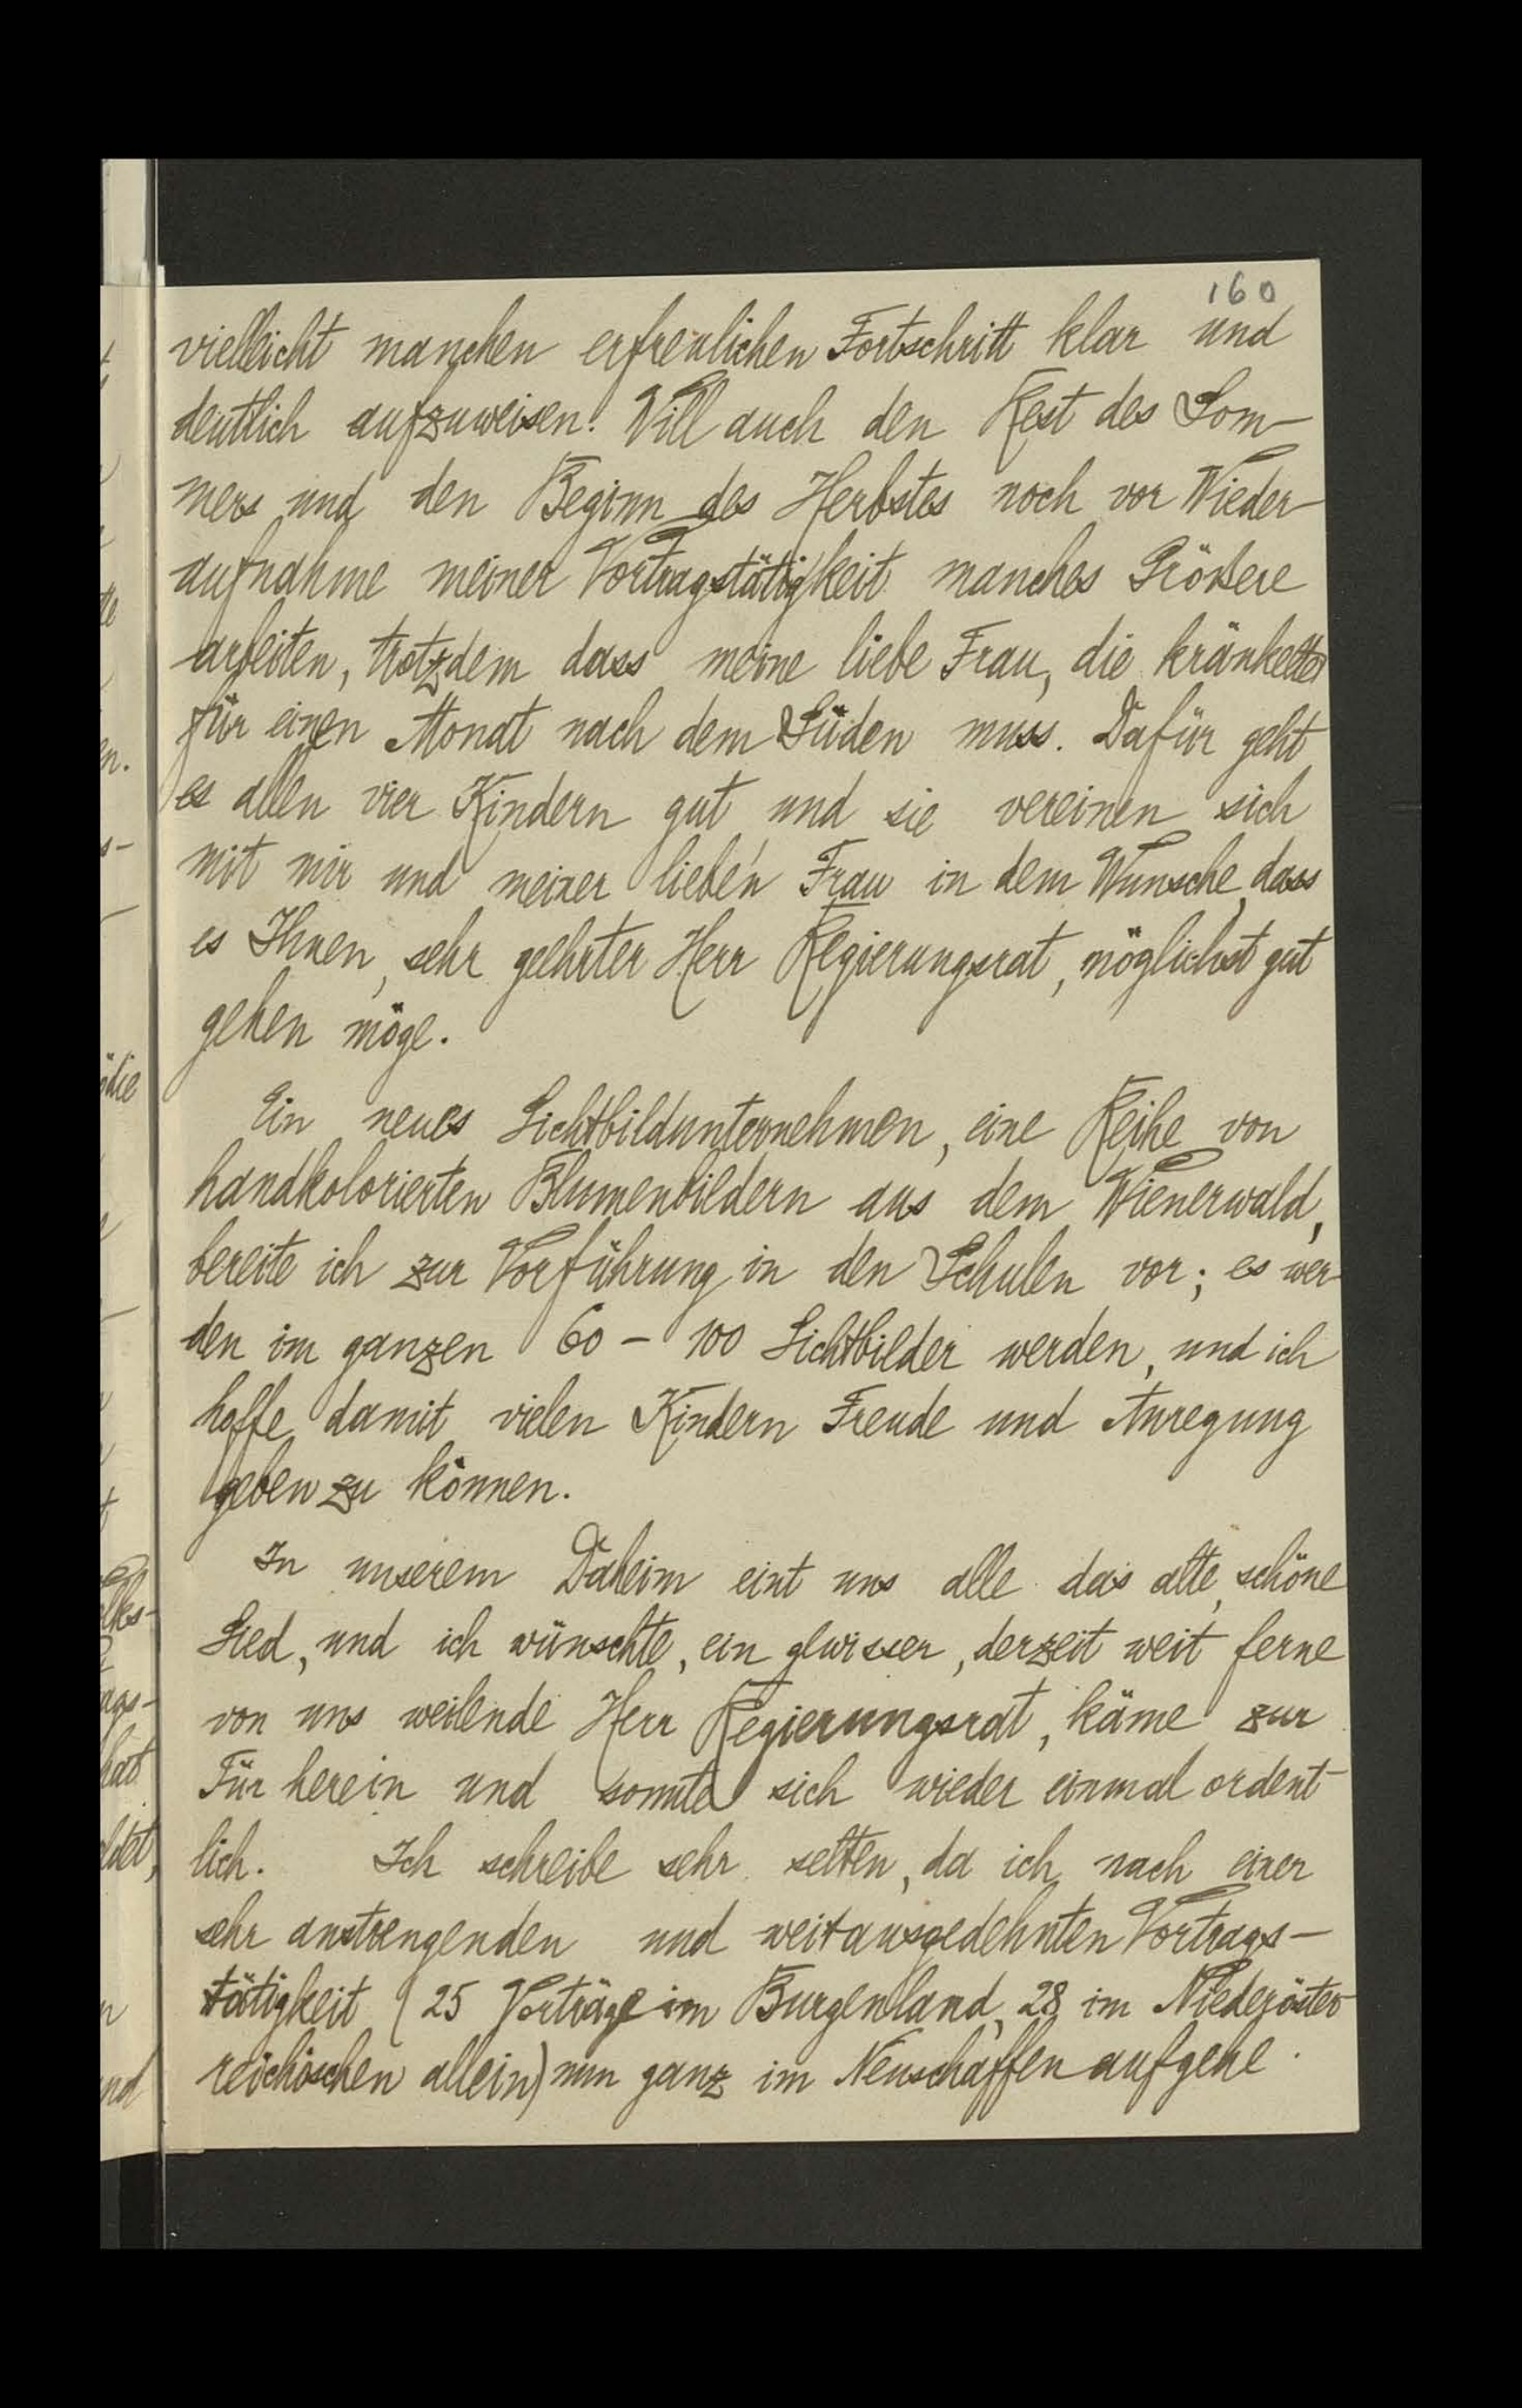 160
vielleicht manchen erfreulichen Fortschritt klar und
deutlich aufzuweisen! Will auch den Rest des Som-
mers und den Beginn des Herbstes noch vor Wieder-
aufnahme meiner Vortragstätigkeit manches Größere
arbeiten, trotzdem dass meine liebe Frau, die kränkelte,
für einen Monat nach dem Süden muss. Dafür geht
es allen vier Kindern gut und sie vereinen sich
mit mir und meiner lieben Frau in dem Wunsche, dass
es Ihnen, sehr geehrter Herr Regierungsrat, möglichst gut
gehen möge.
Ein neues Lichtbildunternehmen, eine Reihe von
handkolorierten Blumenbildern aus dem Wienerwald,
bereite ich zur Vorführung in den Schulen vor; es wer-
den im ganzen 60 - 100 Lichtbilder werden, und ich
hoffe damit vielen Kindern Freude und Anregung
geben zu können.
In unserem Daheim eint uns alle das alte, schöne
Lied, und ich wünschte, ein gewisser, derzeit weit ferne
von uns weilende Herr Regierungsrat, käme zur
Tür herein und sonnte sich wieder einmal ordent-
lich. Ich schreibe sehr selten, da ich nach einer
sehr anstrengenden und weitausgedehnten Vortrags-
tätigkeit (25 Vorträge im Burgenland, 28 im Niederöster-
reichischen allein) nun ganz im Neuschaffen aufgehe.